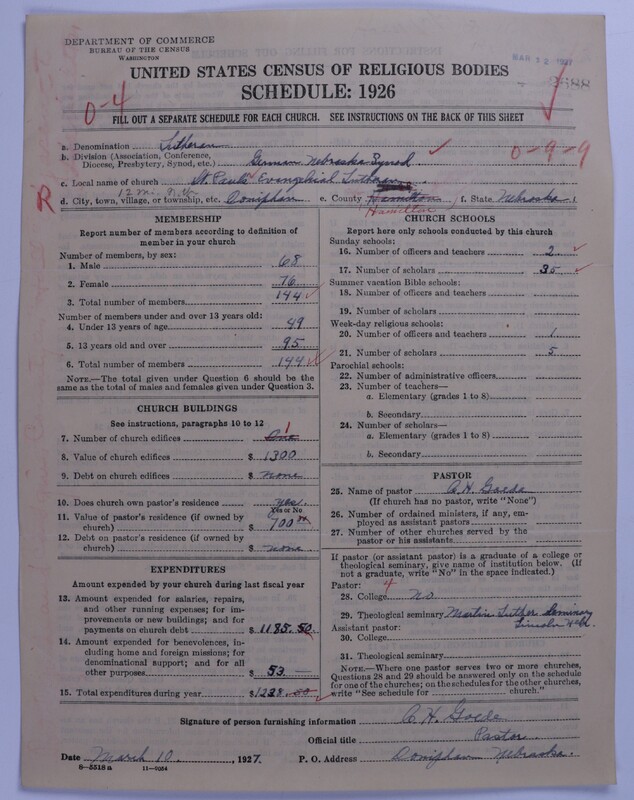 DEPARTMENT OF COMMERCE
BUREAU OF THE CENSUS
WASHINGTON
MAR 12 1927
UNITED STATES CENSUS OF RELIGIOUS BODIES
SCHEDULE: 1926
0-4
FILL OUT A SEPARATE SCHEDULE FOR EACH CHURCH. SEE INSTRUCTIONS ON THE BACK OF THIS SHEET
0-9-9
a. Denomination Lutheran
b. Division (Association, Conference, Diocese, Presbytery, Synod, etc.) German Nebraska Synod
c. Local name of church St. Pauls Evangelical Lutheran
R
d. City, town, village, or township, etc. Doniphan e. County Hamilton f. State Nebraska
Hamilton
MEMBERSHIP
Report number of members according to definition of member in your church
Number of members, by sex:
1. Male 68
2. Female 76
3. Total number of members 144
Number of members under and over 13 years old:
4. Under 13 years of age 49
5. 13 years old and over 95
6. Total number of members 144
NOTE.—The total given under Question 6 should be the same as the total of males and females given under Question 3.
CHURCH BUILDINGS
See instructions, paragraphs 10 to 12
7. Number of church edifices One 1
8. Value of church edifices $ 1300
9. Debt on church edifices $ none
10. Does church own pastor's residence yes
Yes or No
11. Value of pastor's residence (if owned by church) $ 700 00
12. Debt on pastor's residence (if owned by church) $ none
EXPENDITURES
Amount expended by your church during last fiscal year
13. Amount expended for salaries, repairs, and other running expenses; for improvements or new buildings; and for payments on church debt $ 1185.50
14. Amount expended for benevolences, including home and foreign missions; for denominational support; and for all other purposes $ 53.—
15. Total expenditures during year $ 1238.50
CHURCH SCHOOLS
Report here only schools conducted by this church
Sunday schools:
16. Number of officers and teachers 2
17. Number of scholars 35
Summer vacation Bible schools:
18. Number of officers and teachers
19. Number of scholars
Week-day religious schools:
20. Number of officers and teachers 1
21. Number of scholars 5
Parochial schools:
22. Number of administrative officers
23. Number of teachers—
a. Elementary (grades 1 to 8)
b. Secondary
24. Number of scholars—
a. Elementary (grades 1 to 8)
b. Secondary
PASTOR
25. Name of pastor C. H. Goede
(If church has no pastor, write "None")
26. Number of ordained ministers, if any, employed as assistant pastors
27. Number of other churches served by the pastor or his assistants
If pastor (or assistant pastor) is a graduate of a college or theological seminary, give name of institution below. (If not a graduate, write "No" in the space indicated.)
Pastor: 4
28. College no
29. Theological seminary Martin Luther Seminary
Lincoln Neb.
Assistant pastor:
30. College
31. Theological seminary
NOTE.—Where one pastor serves two or more churches, Questions 28 and 29 should be answered only on the schedule for one of the churches; on the schedules for the other churches, write "See schedule for church."
Signature of person furnishing information C. H. Goede
Official title Pastor
Date March 10, 1927. P. O. Address Doniphan Nebraska.
8—5518a 11—7054